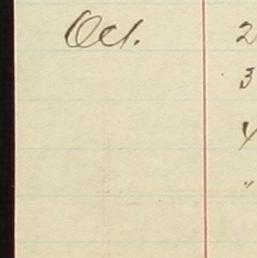 Oct. 2
3
4
"